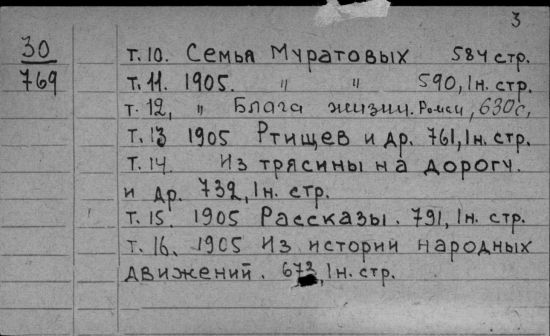 3
30
769
т.10. Семья Муратовых 584 стр.
т.11. 1905. " " 590, 1н. стр.
т.12, " Блага жизни. Роман, 630с,
т.13 1905 Ртищев и др. 761, 1н. стр.
т.14. Из трясины на дорогу.
и др. 732, 1н. стр.
т.15. 1905 Рассказы. 791, 1н. стр.
т.16. 1905 Из истории народных
движений. 673, 1н. стр.